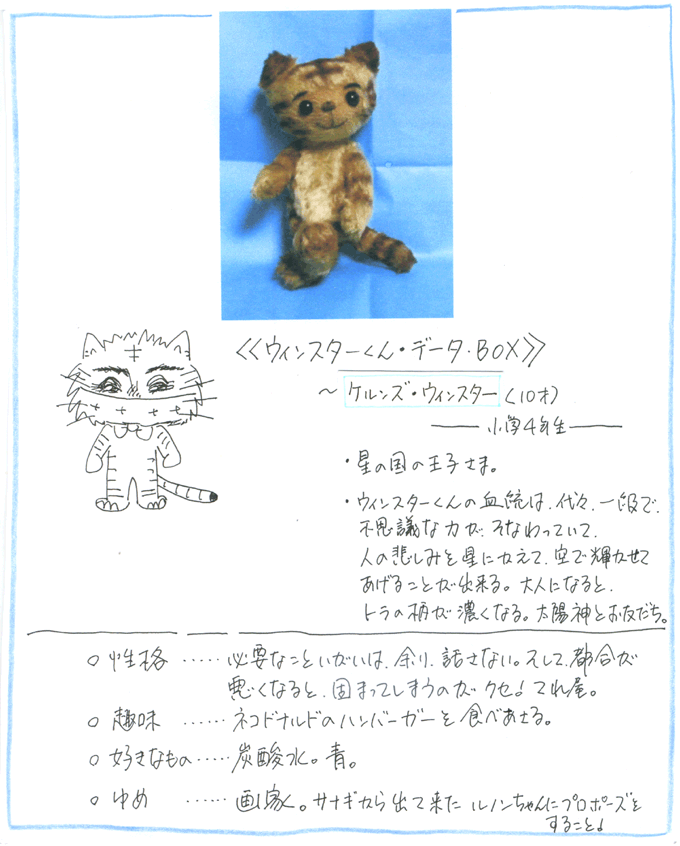 ≪ウィンスターくん・データ・BOX≫
～ケルンズ・ウィンスター(10才)
小学4年生
・星の国の王子さま。
・ウィンスターくんの血統は、代々、一級で、
不思議な力が、そなわっていて、
人の悲しみを星にかえて、空で輝かせて
あげることが出来る。大人になると、
トラの柄が濃くなる。太陽神とお友だち。
○ 性格 …… 必要なこといがいは、余り、話さない。そして、都合が
悪くなると、固まってしまうのがクセ♪てれ屋。
○ 趣味 …… ネコドナルドのハンバーガーを食べあさる。
○ 好きなもの …… 炭酸水。青。
○ ゆめ …… 画家。サナギから出て来たルノンちゃんにプロポーズを
すること♪